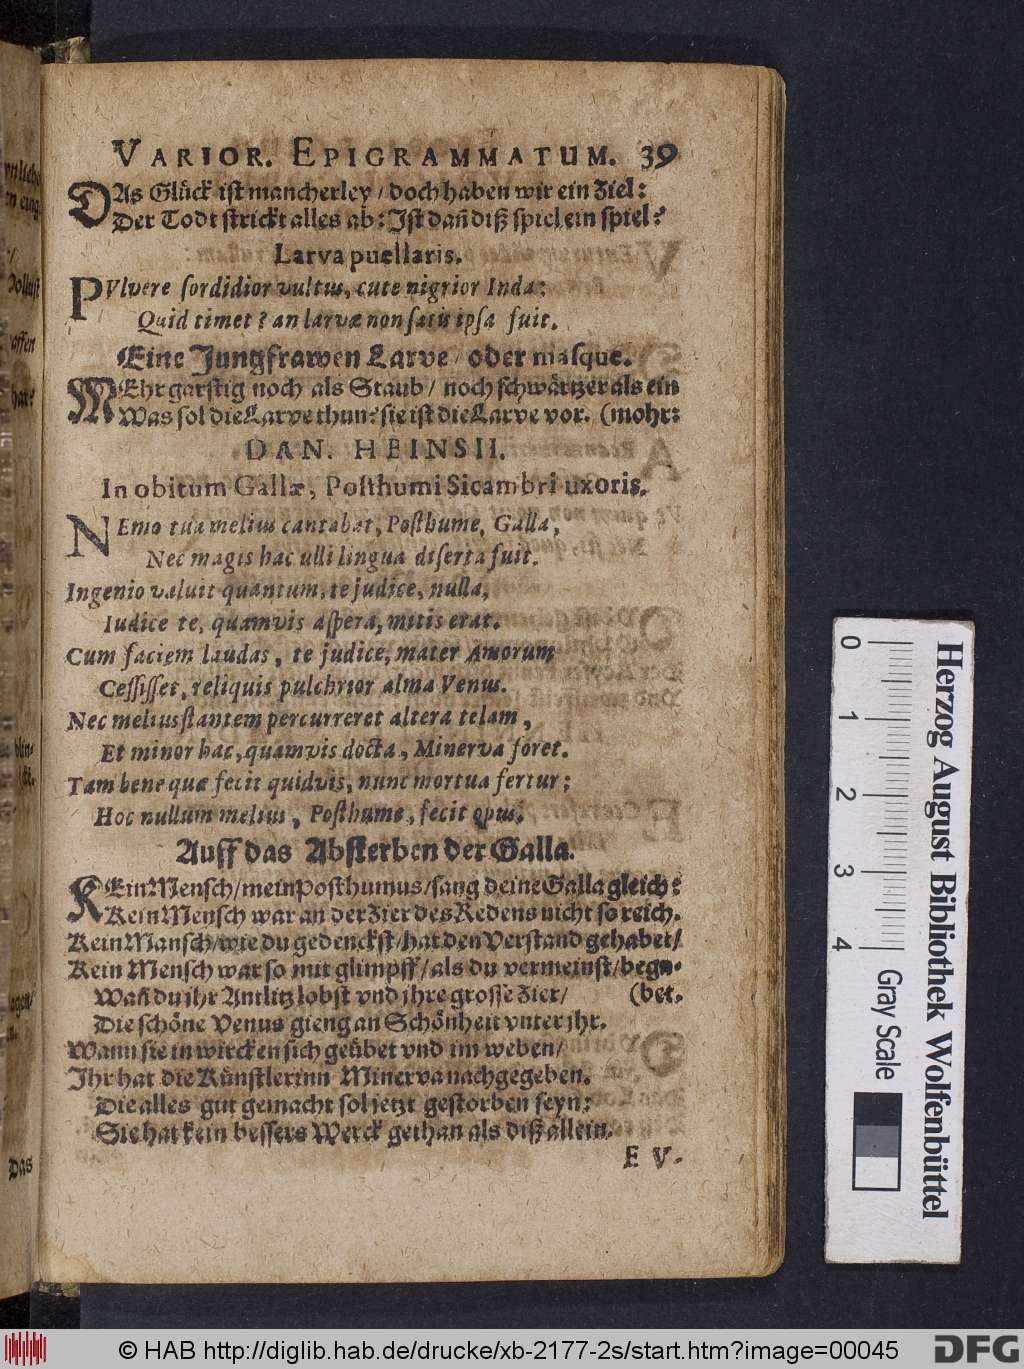 VARIOR. EPIGRAMMATUM. 39
DAs Glück ist mancherley / doch haben wir ein Ziel:
Der Todt strickt alles ab: Jst dañ diß spiel ein spiel?
Larva puellaris.
PUlvere sordidior vultus, cute nigrior Inda:
Quid timet? an larvæ non satis ipsa fuit.
Eine Jungfrawen Larve / oder masque.
MEhr garstig noch als Staub / noch schwärtzer als ein
Was sol die Larve thun? sie ist die Larve vor. (mohr:
DAN. HEINSII.
In obitum Gallæ, Posthumi Sicambri uxoris.
NEmo tua melius cantabat, Posthume, Galla,
Nec magis hac ulli lingua diserta fuit.
Ingenio valuit quantum, te judice, nulla,
Iudice te, quamvis aspera, mitis erat.
Cum faciem laudas, te judice, mater Amorum
Cessisset, reliquis pulchrior alma Venus.
Nec melius stantem percurreret altera telam,
Et minor hac, quamvis docta, Minerva foret.
Tam bene quæ fecit quidvis, nunc mortua fertur;
Hoc nullum melius, Posthume, fecit opus.
Auff das Absterben der Galla.
KEin Mensch / mein Posthumus / sang deine Galla gleich:
Kein Mensch war an der Zier des Redens nicht so reich.
Kein Mansch / wie du gedenckst / hat den Verstand gehabet /
Kein Mensch war so mit glimpff / als du vermeinst / bega-
Wañ du jhr Antlitz lobst vnd jhre grosse Zier / (bet.
Die schöne Venus gieng an Schönheit vnter jhr.
Wann sie in wircken sich geübet vnd im weben /
Jhr hat die Künstlerinn Minerva nachgegeben.
Die alles gut gemacht sol jetzt gestorben seyn:
Sie hat kein bessers Werck gethan als diß allein.
E V.
nnliche
Wollust
affen
hat?
Das
0 1 2 3 4
Herzog August Bibliothek Wolfenbüttel
Gray Scale
© HAB http://diglib.hab.de/drucke/xb-2177-2s/start.htm?image=00045
DFG